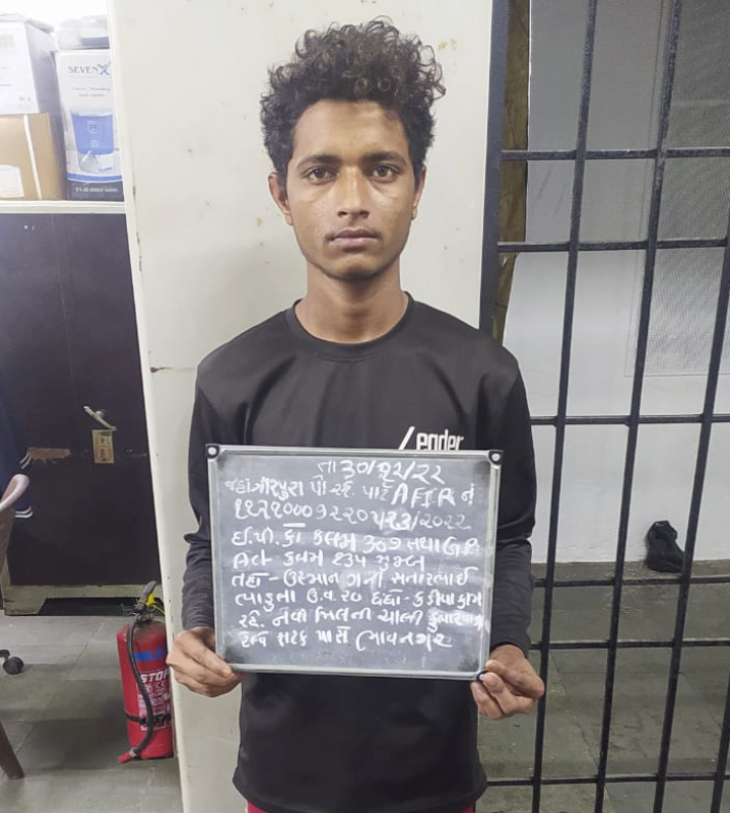 SEVEN
Leader
તા ૩૦/૧૨/૨૨
જહાંગીરપુરા પો સ્ટે. પાર્ટ A FIR નં
૧૧૨૧૦૦૦૧૨૨૦૫૨૩/૨૦૨૨
ઈ.પી. કો કલમ ૩૦૭ તથા G.P.
Act કલમ ૧૩૫ મુજબ
ઉસ્માન ગની સતારભાઈ
લાડુલા ઉ.વ. ૨૦ ધંધો- કડીયાકામ
રહે. નવી મિલની ચાલી કુંભારવાડા
સરક પાસે ભાવનગર
STOP